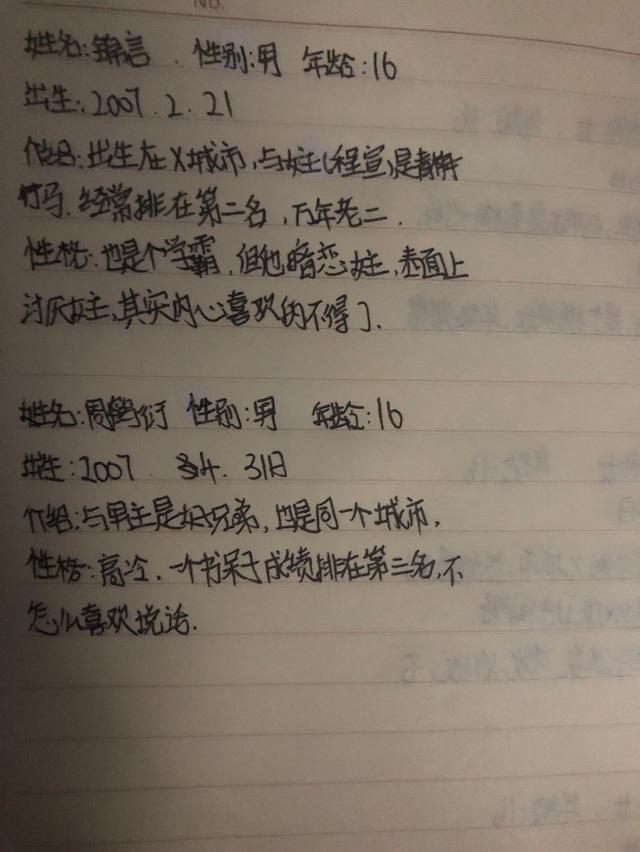 No.
姓名:锦言. 性别:男 年龄:16
出生:2007.2.21
介绍:出生在X城市,与女主(程宣)是青梅
竹马.经常排在第二名,万年老二.
性格:也是个学霸,但他暗恋女主,表面上
讨厌女主,其实内心喜欢的不得了.
姓名:周鹤衍 性别:男 年龄:16
出生:2007. 4. 31日
介绍:与男主是好兄弟,也是同一个城市,
性格:高冷.一个书呆子成绩排在第三名,不
怎么喜欢说话.